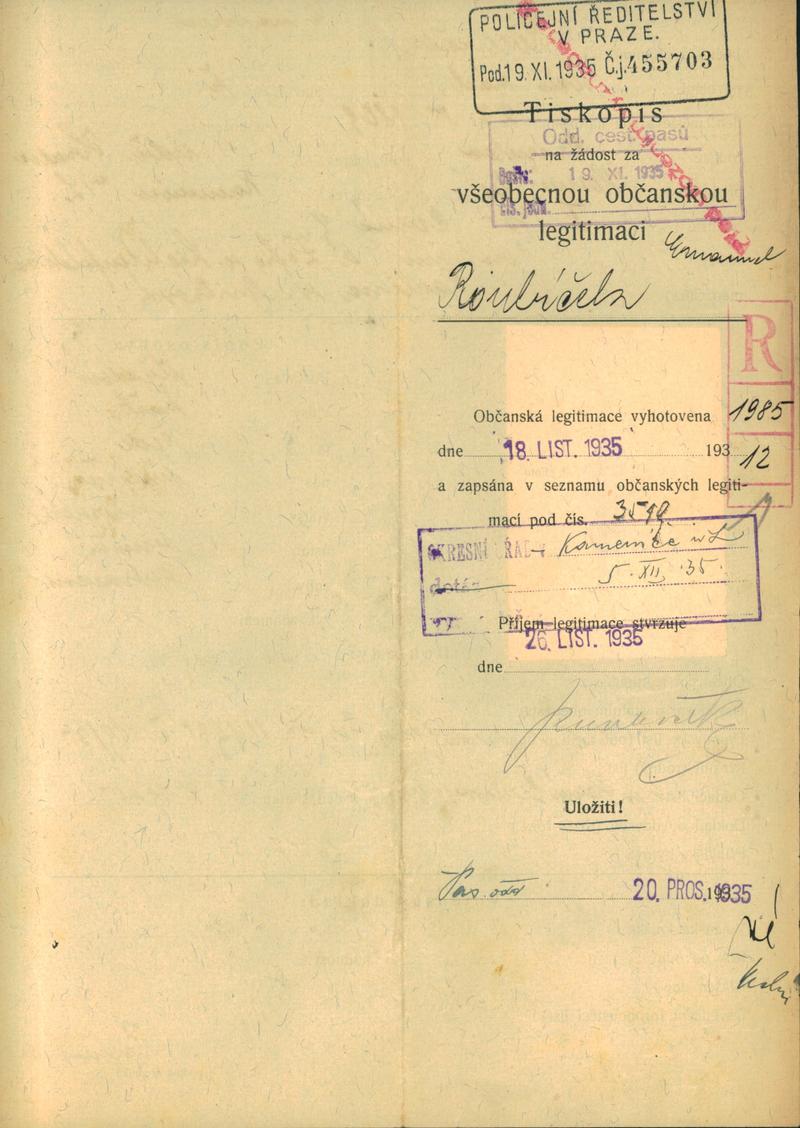 POLICEJNÍ ŘEDITELSTVÍ
V PRAZE.
Pod. 19. XI. 1935 Č.j. 455703
Tiskopis
Odd. cest. pasů
na žádost za
19. XI. 1935
všeobecnou občanskou
legitimaci
Emanuel
Roubíčela
R
Občanská legitimace vyhotovena
1985
dne 18. LIST. 1935 193
12
a zapsána v seznamu občanských legiti-
mací pod čís. 3519.
OKRESNÍ ÚŘAD Kamenice n L
5. XII. 35.
dotaz
Příjem legitimace stvrzuje
26. LIST. 1935
dne
Uložiti!
Pas. odd 20. PROS. 1935 193